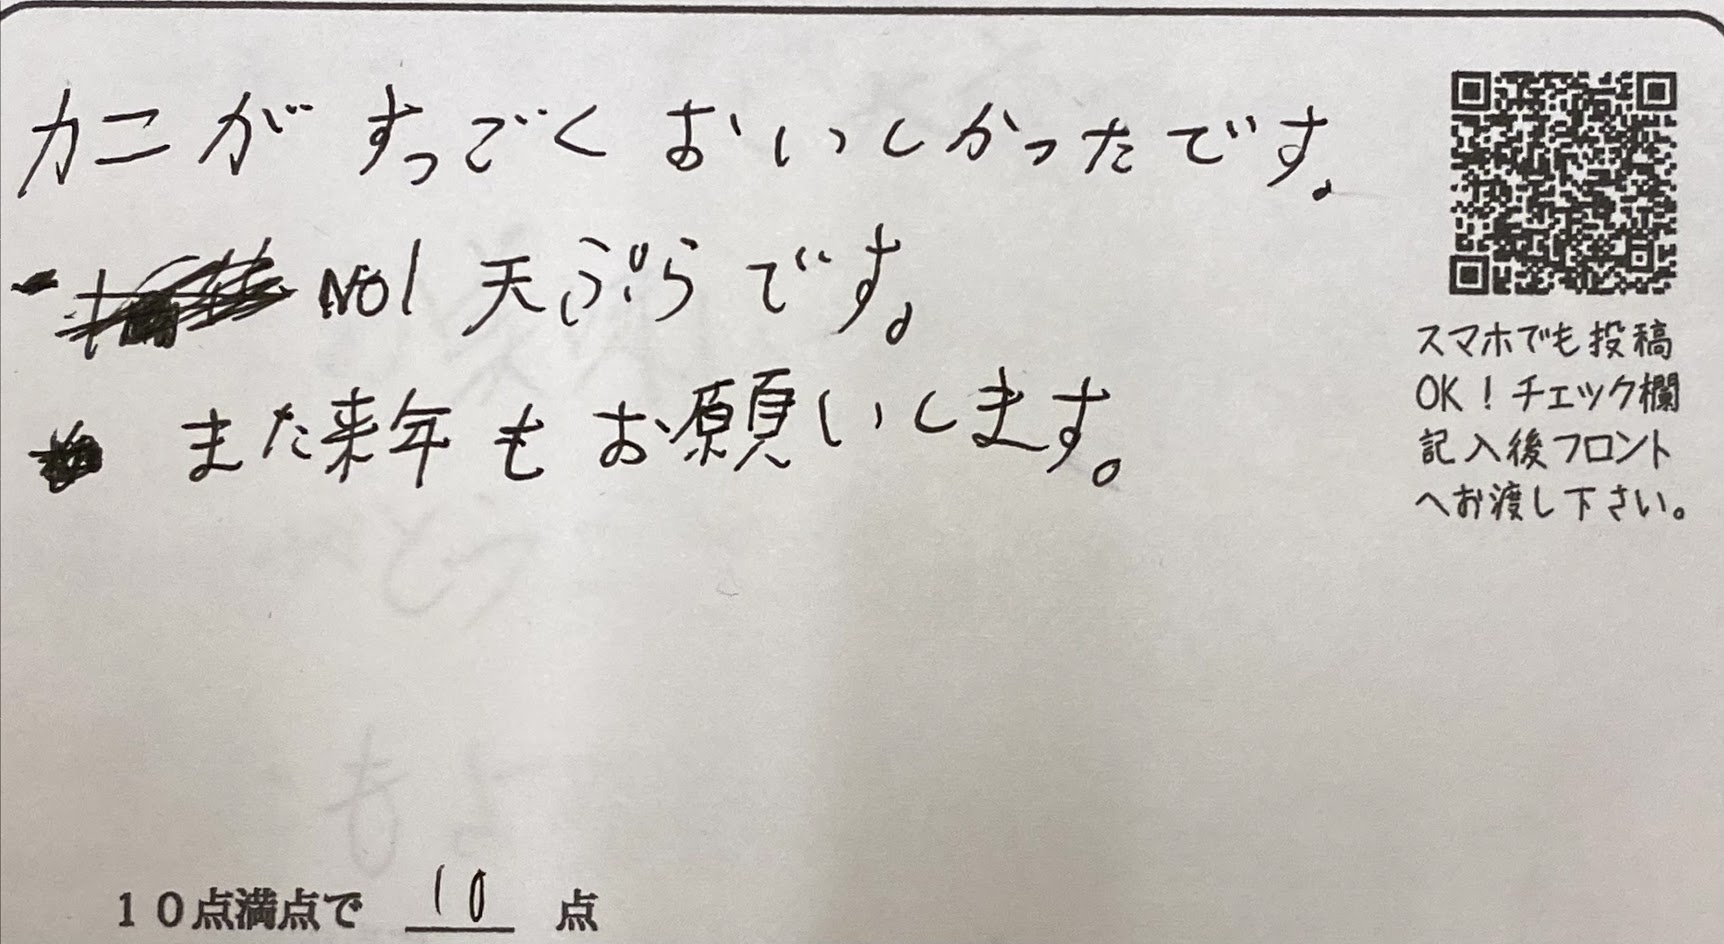 カニがすっごくおいしかったです。
No1 天ぷらです。
また来年もお願いします。
スマホでも投稿
OK！チェック欄
記入後フロント
へお渡し下さい。
10点満点で 10 点